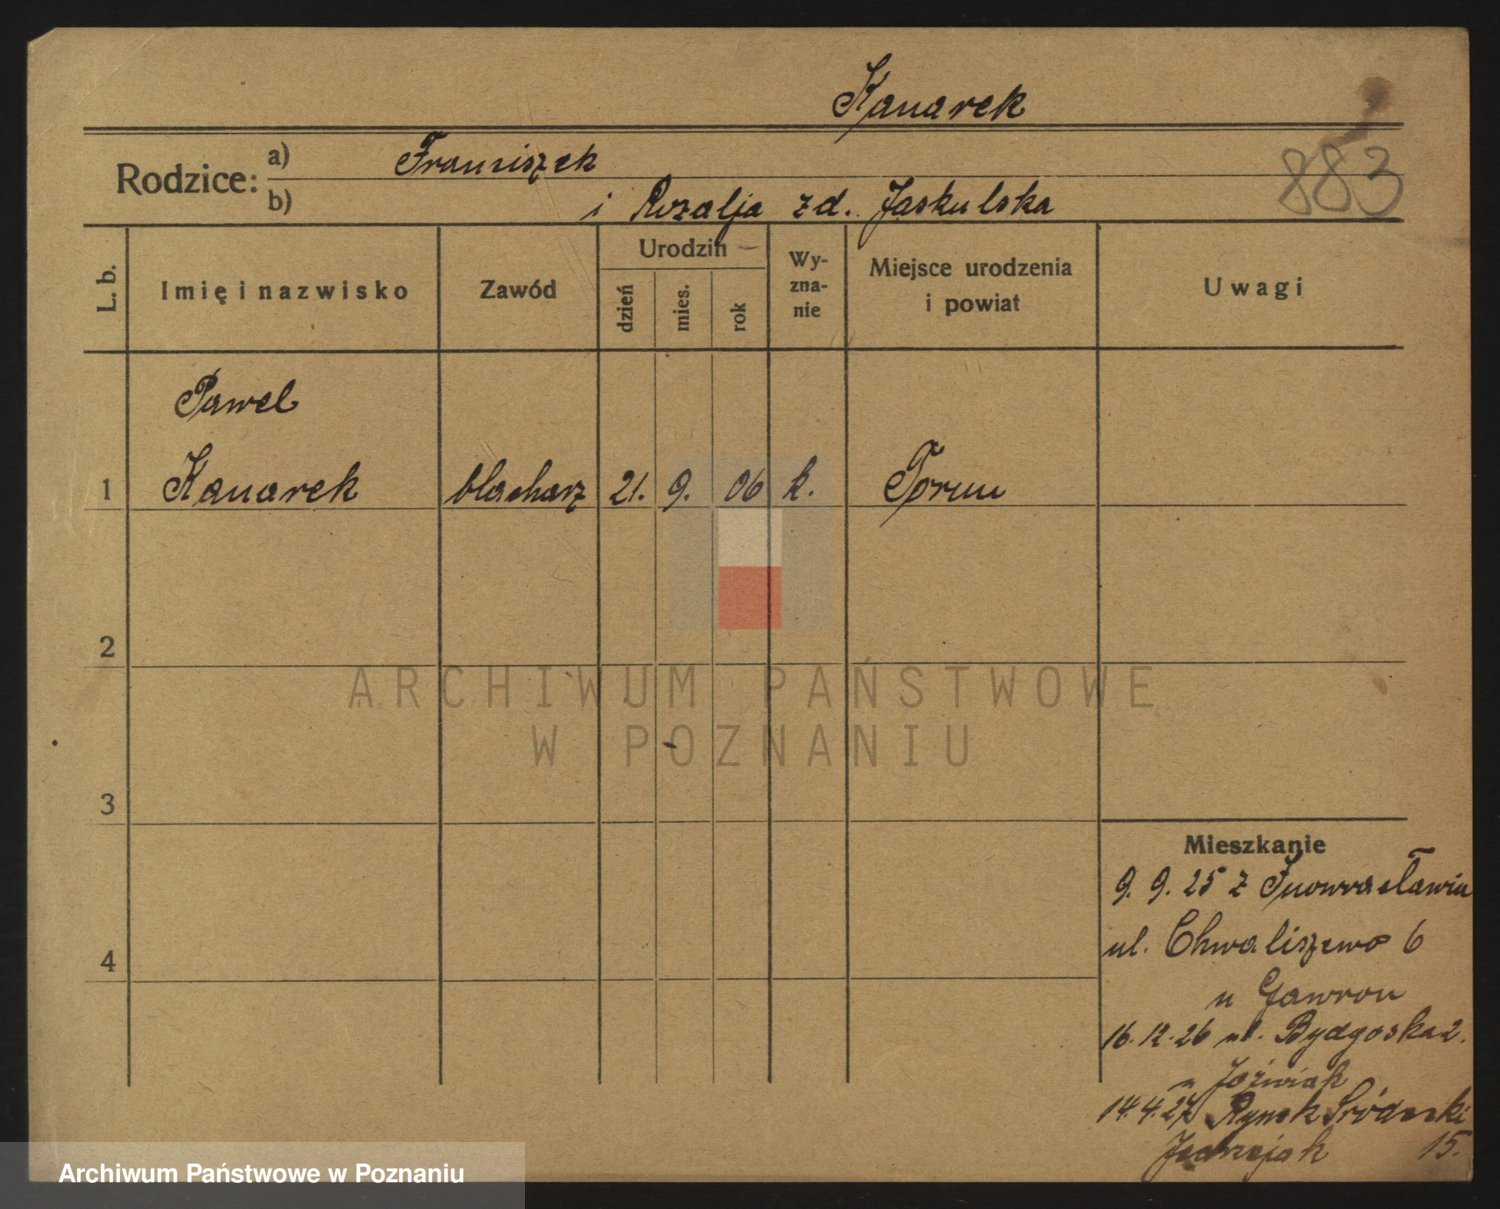 Kanarek
883
Rodzice: a) Franciszek
b) i Rozalja zd. Jaskulska
L. b.
Imię i nazwisko
Zawód
Urodzin
dzień
mies.
rok
Wy-
zna-
nie
Miejsce urodzenia
i powiat
Uwagi
Pawel
1 Kanarek blacharz 21. 9. 06 k. Toruń
2
ARCHIWUM PAŃSTWOWE
W POZNANIU
3
Mieszkanie
9. 9. 25 z Inowrocławia
ul. Chwaliszewo 6
4
u Gawron
16. 12. 26 ul. Bydgoska 2.
u Jóźwiak
14. 4. 27 Rynek Śródecki
Jędrzejak 15.
Archiwum Państwowe w Poznaniu